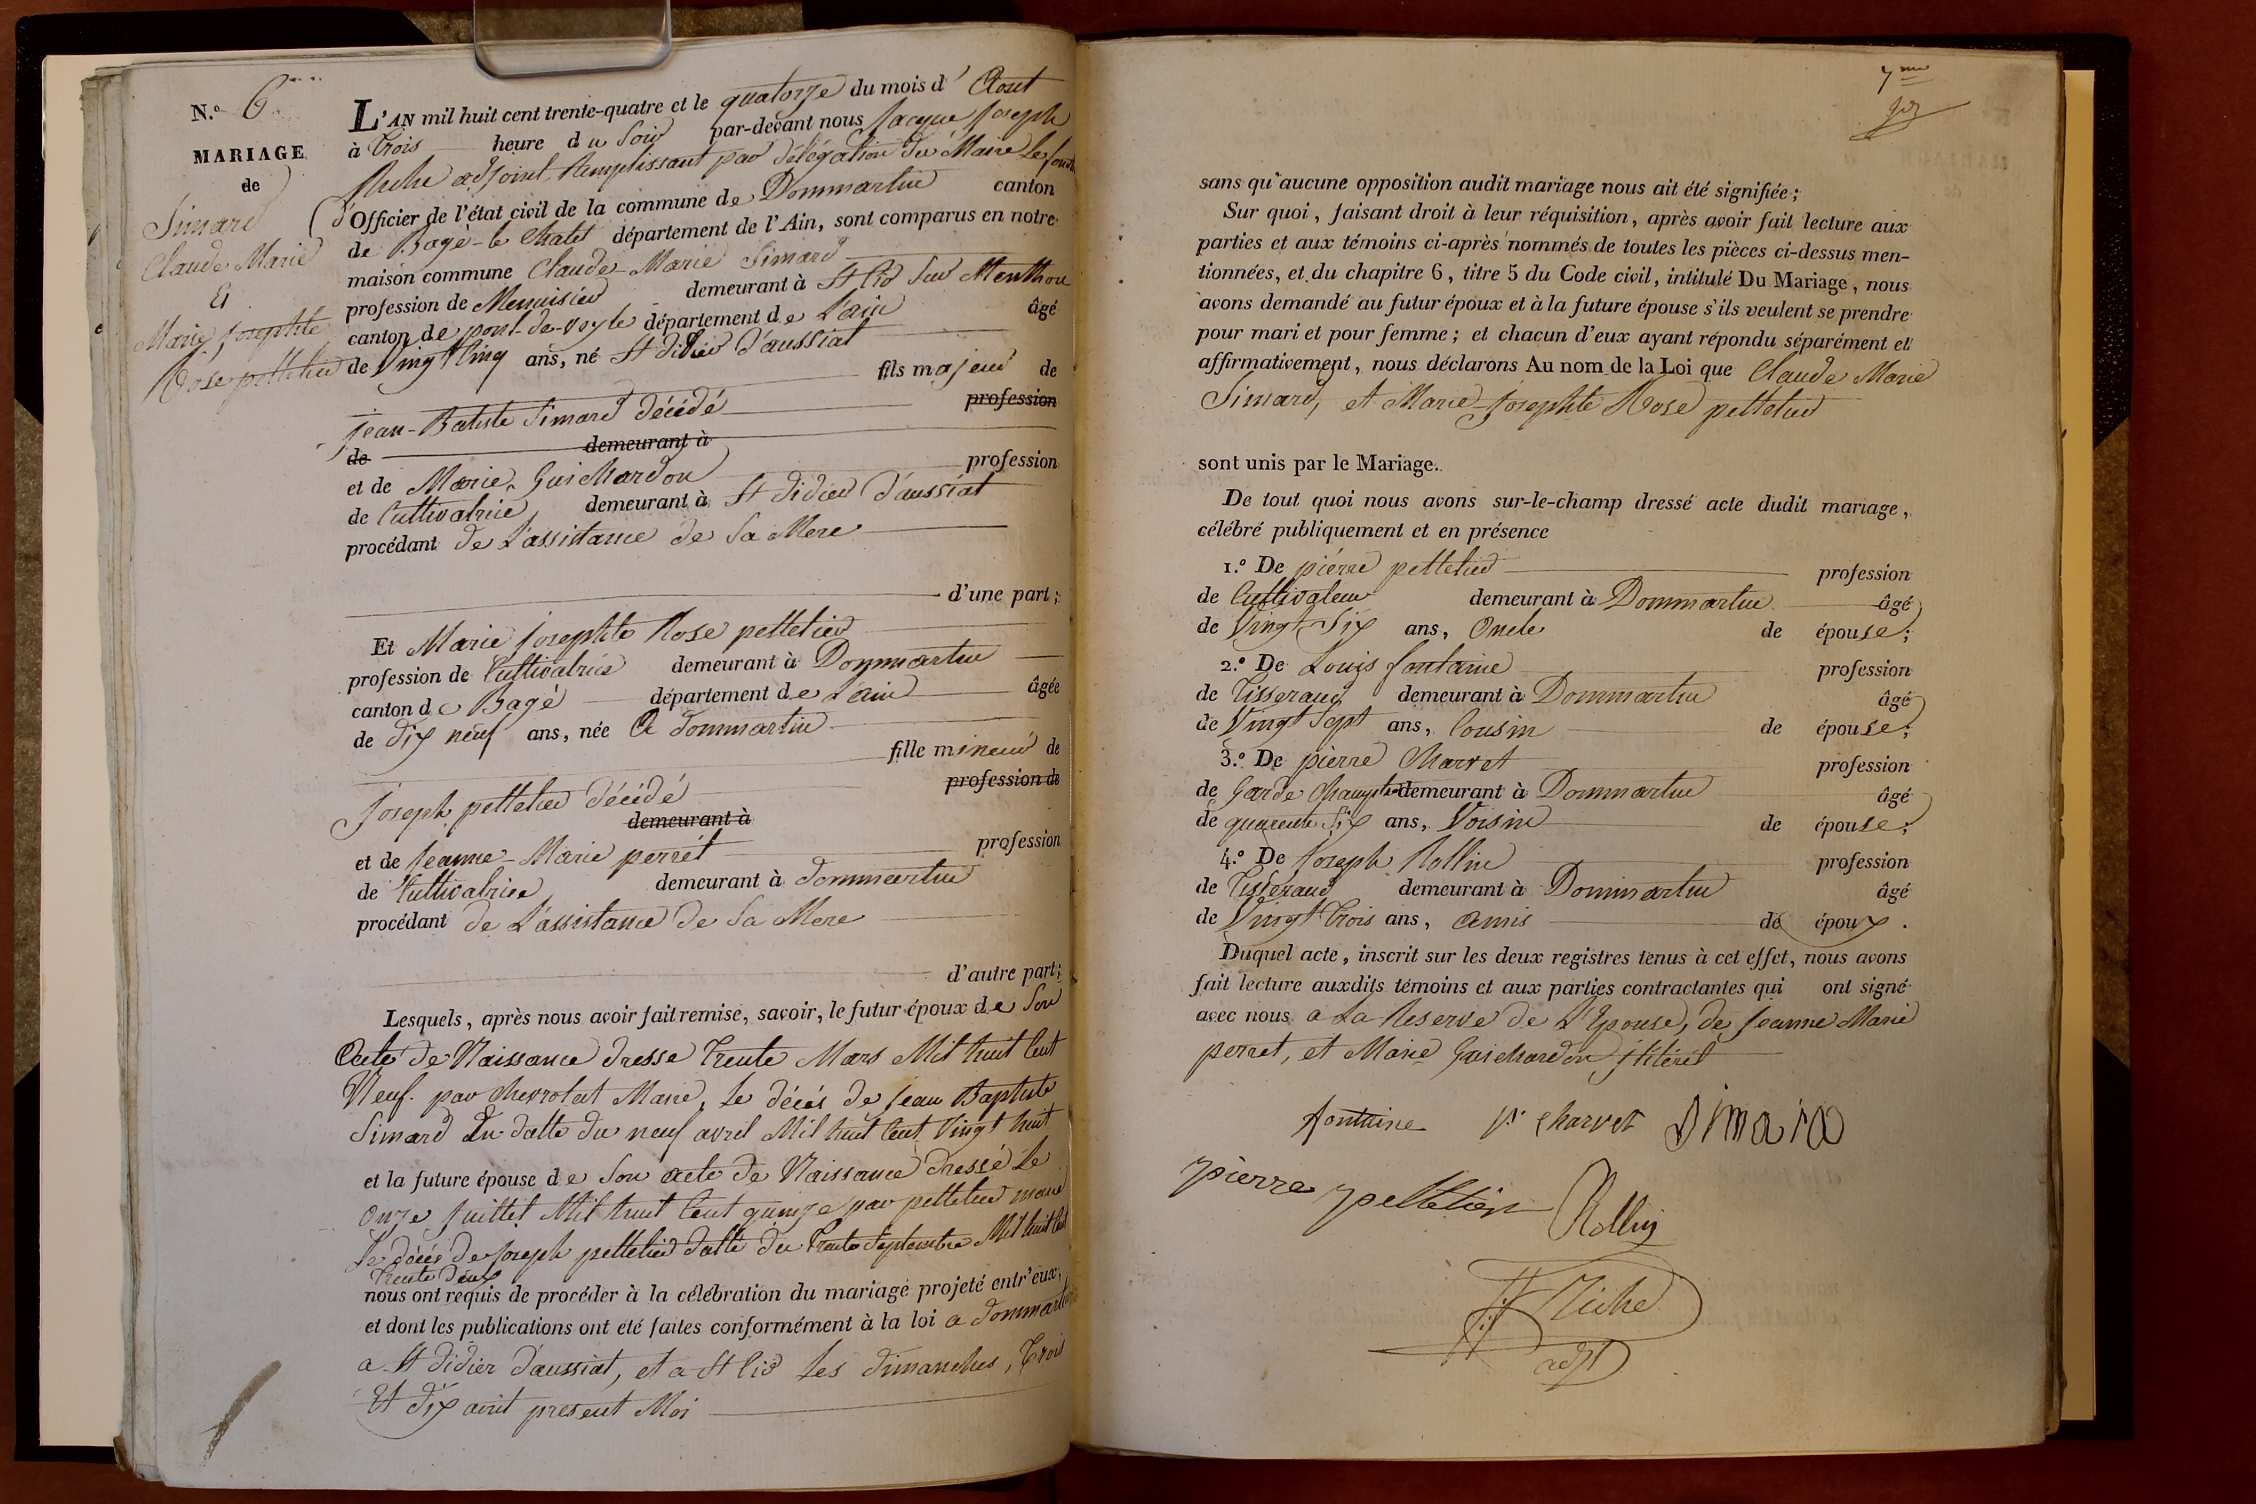 N.º 6
MARIAGE
de
Simard
Claude Marie
Et
Marie josephte
Rose pelletier
L'AN mil huit cent trente-quatre et le quatorze du mois d' Aout
à trois heure du soir par-devant nous Jacque Joseph
adjoint Remplissant par délégation du Maire les fonctions
d'Officier de l'état civil de la commune de Dommartin canton
de Bagé-le Chatel département de l'Ain, sont comparus en notre
maison commune Claude Marie Simard
profession de Menuisier demeurant à St Cir sur Menthon
canton de pont-de-veyle département de L'ain âgé
de Vingt Cinq ans, né St didier d'aussiat
fils majeur de
jean-Batiste Simard décédé profession
de demeurant à
et de Marie Guichardon profession
de Cultivatrice demeurant à St didier d'aussiat
procédant de L'assistance de Sa Mere
d'une part;
Et Marie josephte Rose pelletier
profession de Cultivatrice demeurant à Dommartin
canton de Bagé département de L'ain âgée
de dix neuf ans, née a dommartin
fille mineur de
Joseph pelletier décédé profession de
demeurant à
et de jeanne-Marie perret profession
de Cultivatrice demeurant à dommartin
procédant de L'assistance de Sa Mere
d'autre part;
Lesquels, après nous avoir fait remise, savoir, le futur époux de Son
Acte de Naissance dresse trente Mars Mil huit Cent
Neuf par Chevrolat Maire, Le décés de jean Baptiste
Simard En datte du neuf avril Mil huit Cent Vingt huit
et la future épouse de Son acte de Naissance dressé Le
Onze juillet Mil huit Cent quinze par pelletier maire
le décés de Joseph pelletier datté du trente Septembre Mil huit Cent
trente deux
nous ont requis de procéder à la célébration du mariage projeté entr'eux,
et dont les publications ont été faites conformément à la loi a dommartin
a St didier d'aussiat, et a St Cir Les dimanches, trois
Et dix aout present Moi
7me
sans qu'aucune opposition audit mariage nous ait été signifiée;
Sur quoi, faisant droit à leur réquisition, après avoir fait lecture aux
parties et aux témoins ci-après nommés de toutes les pièces ci-dessus men-
tionnées, et du chapitre 6, titre 5 du Code civil, intitulé Du Mariage, nous
avons demandé au futur époux et à la future épouse s'ils veulent se prendre
pour mari et pour femme; et chacun d'eux ayant répondu séparément et
affirmativement, nous déclarons Au nom de la Loi que Claude Marie
Simard, et Marie-josephte Rose pelletier
sont unis par le Mariage.
De tout quoi nous avons sur-le-champ dressé acte dudit mariage,
célébré publiquement et en présence
1.º De piérre pelletier profession
de Cultivateur demeurant à Dommartin âgé
de Vingt Six ans, Oncle de épouse;
2.º De Louis fontaine profession
de Tisserand demeurant à Dommartin âgé
de Vingt Sept ans, Cousin de épouse;
3.º De pièrre Charvet profession
de Garde Champetre demeurant à Dommartin âgé
de quarente Six ans, Voisin de épouse;
4.º De Joseph Rollin profession
de Tisserand demeurant à Dommartin âgé
de Vingt trois ans, amis de époux.
Duquel acte, inscrit sur les deux registres tenus à cet effet, nous avons
fait lecture auxdits témoins et aux parties contractantes qui ont signé
avec nous a La Reserve de L'Epouse, de jeanne Marie
perret, et Marie Guichardon jlitéret
fontaine p. Charvet Simard
pierre pelletier Rollin
adjt